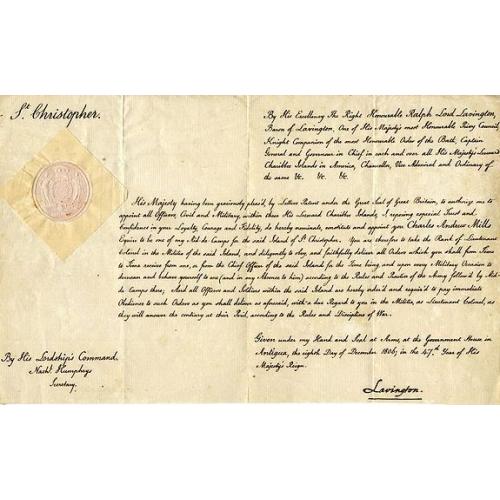 St. Christopher.
By His Excellency The Right Honourable Ralph Lord Lavington,
Baron of Lavington, One of His Majesty's most Honourable Privy Council,
Knight Companion of the most Honourable Order of the Bath, Captain
General and Governour in Chief in and over all His Majesty's Leeward
Charibbee Islands in America, Chancellor, Vice Admiral and Ordinary of
the same &c. &c. &c.
His Majesty having been graciously pleas'd, by Letters Patent under the Great Seal of Great Britain, to authorize me to
appoint all Officers, Civil and Military, within these His Leeward Charibbee Islands, I reposing especial Trust and
Confidence in your Loyalty, Courage and Fidelity, do hereby nominate, constitute and appoint you Charles Andrew Mills
Esquire to be one of my Aid-de-Camps for the said Island of St. Christopher. You are therefore to take the Rank of Lieutenant
Colonel in the Militia of the said Island, and diligently to obey, and faithfully deliver all Orders which you shall from Time
to Time receive from me, or from the Chief Officer of the said Island for the Time being, and upon every Military Occasion to
demean and behave yourself to me (and in my Absence to him) according to the Rules and Practice of the Army follow'd by Aid-
de Camps there; And all Officers and Soldiers within the said Island are hereby requir'd to pay immediate
Obedience to such Orders as you shall deliver as aforesaid, with a due Regard to you in the Militia, as Lieutenant Colonel, as
they will answer the contrary at their Peril, according to the Rules and Discipline of War.
Given under my Hand and Seal at Arms, at the Government House in
Antigua, the eighth Day of December 1806, in the 47th Year of His
Majesty's Reign.
By His Lordship's Command,
Nathl. Humphrys
Secretary.
Lavington.